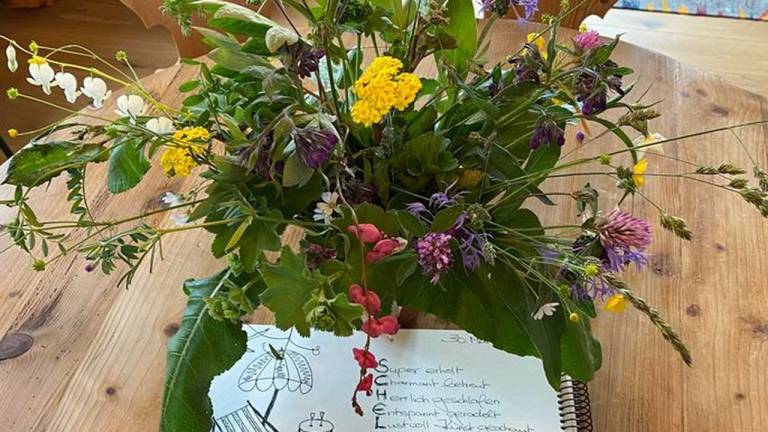 30. M
Super erholt
Charmant betreut
Herrlich geschlafen
Entspannt geradelt
Lustvoll Kunst geschaut